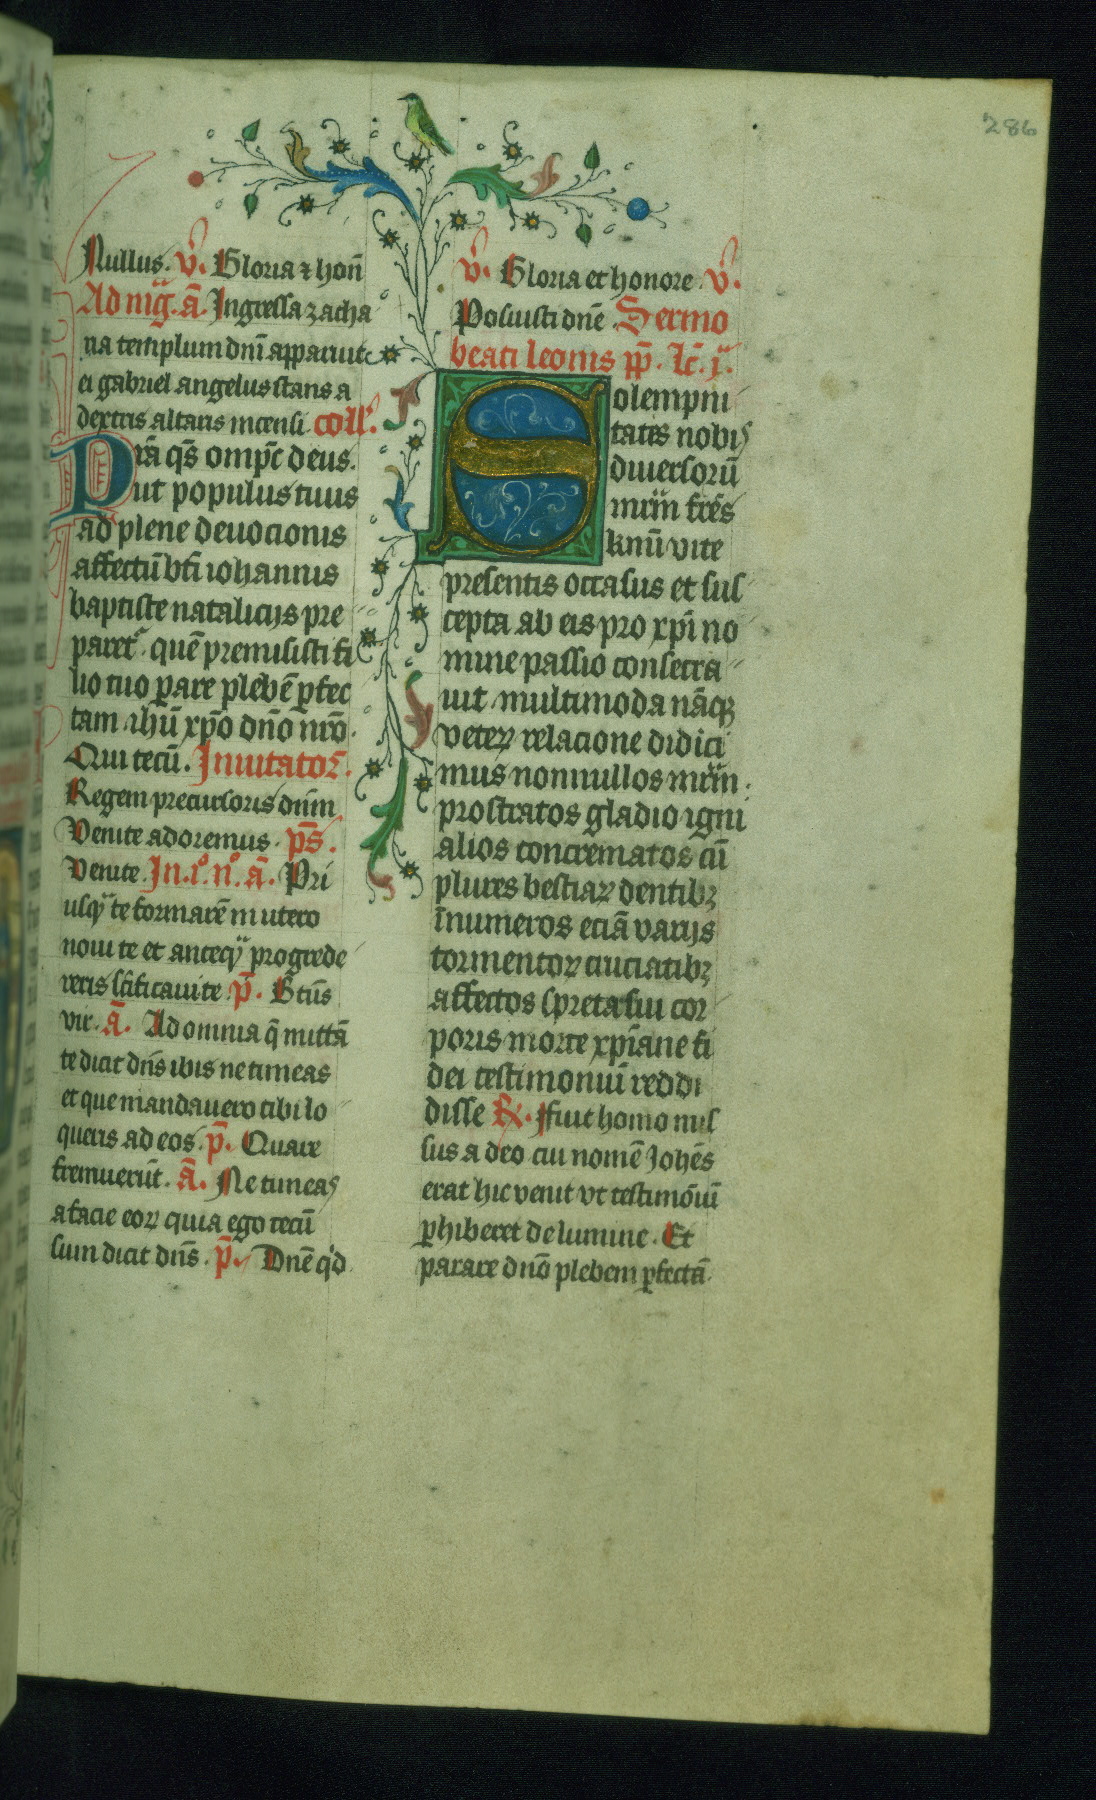 286
Nullus. v̄. Gloria ⁊ hon̄
Ad mīg. ā. Ingressa zacha
ria templum dnī apparuit
ei gabriel angelus stans a
dextris altaris incensi. coll̄.
Prā qs̄ ompc̄ deus.
ut populus tuus
ad plene deuocionis
affectū bt̄i iohannis
baptiste natalicijs pre
paret². quē premisisti fi
lio tuo ꝑare plebē ꝑfec
tam ihū xp̄o dn̄o nr̄o.
Qui tecū. Inuitator̄.
Regem precursoris dn̄m
Venite adoremus. ps̄.
Venite. In .i°. n°. ā. Pri
usqᵃ te formarē in utero
noui te et anteqᵃ progrede
reris sc̄ificaui te. p̄. Bt̄us
vir. ā. Ad omnia q̄ mittā
te dicit dn̄s ibis ne timeas
et que mandauero tibi lo
queris ad eos. p̄. Quare
fremuerūt. ā. Ne timeas
a facie eoꝝ quia ego tecū
sum dicit dn̄s. p̄. Dn̄e qͥd
v̄. Gloria et honore. v̄.
Posuisti dn̄e. Sermo
beati leonis pp̄. lc̄. j.ᵃ
Solempni
tates nobis
diuersorū
mr̄m frēs
kmī vite
presentis occasus et sus
cepta ab eis pro xp̄i no
mine passio consecra
uit. multimoda nāqꝫ
veteꝝ relacione didici
mus nonnullos mr̄m.
prostratos gladio igni
alios concrematos cū
plures bestiaꝝ dentibꝫ
īnumeros eciā varijs
tormentoꝝ cruciatibꝫ
affectos spreta sui cor
poris morte xp̄iane fi
dei testimoniū reddi
disse ℟. Fuit homo mis
sus a deo cui nomē Johēs
erat hic venit vt testimōiū
ꝑhiberet de lumine. Et
parare dn̄o plebem ꝑfectā.